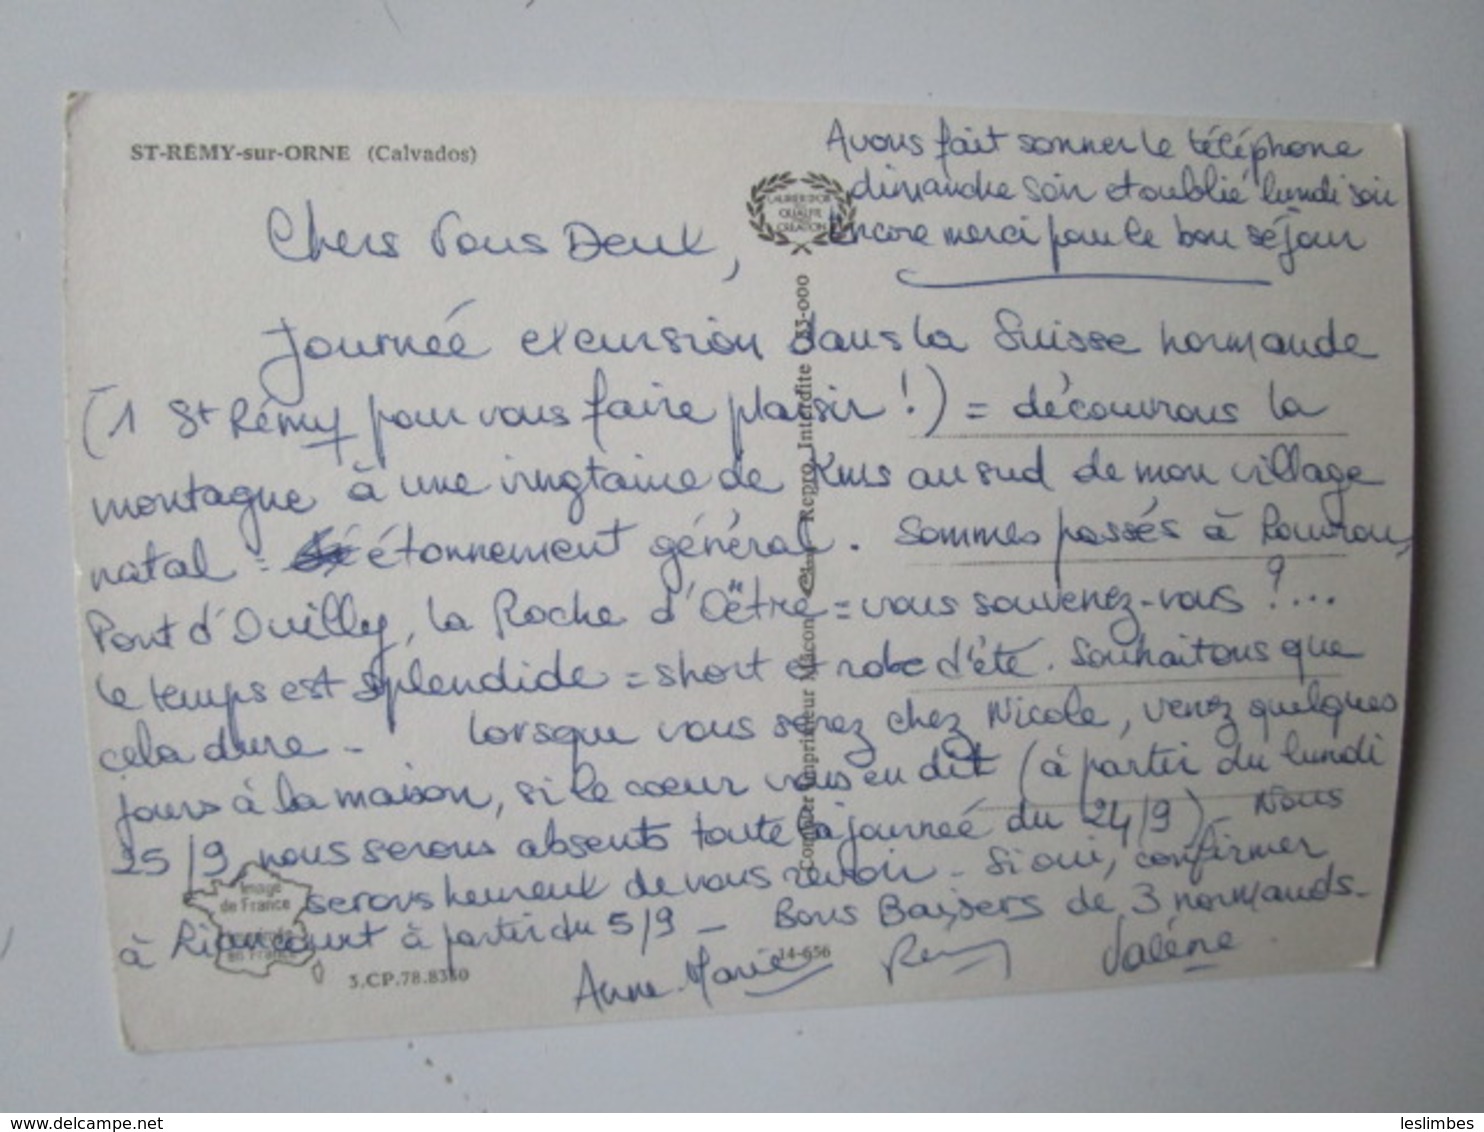 ST-REMY-sur-ORNE (Calvados)
Avons fait sonner le téléphone
dimanche soir et oublié lundi soir
Encore merci pour le bon séjour
LAURIER D'OR
QUALITE
CREATION
Chers Vous Deux,
Journée excursion dans la Suisse normande
(1 St Rémy pour vous faire plaisir !) = découvrons la
montagne à une vingtaine de Kms au sud de mon village
natal = étonnement général. Sommes passés à
Pont d'Ouilly, la Roche d'Oëtre = vous souvenez-vous ?...
le temps est splendide = short et robe d'été. Souhaitons que
cela dure - Lorsque vous serez chez Nicole, venez quelques
jours à la maison, si le coeur vous en dit (à partir du lundi
25/9 nous serons absents toute la journée du 24/9) - Nous
serons heureux de vous revoir - Si oui, confirmer
à Riancourt à partir du 5/9 - Bons Baisers de 3 normands -
Anne-Marie Remy Valérie
Combier Imprimeur Mâcon Repro. Interdite
Image
de France
en France
3.CP.78.8330
14-656
leslimbes